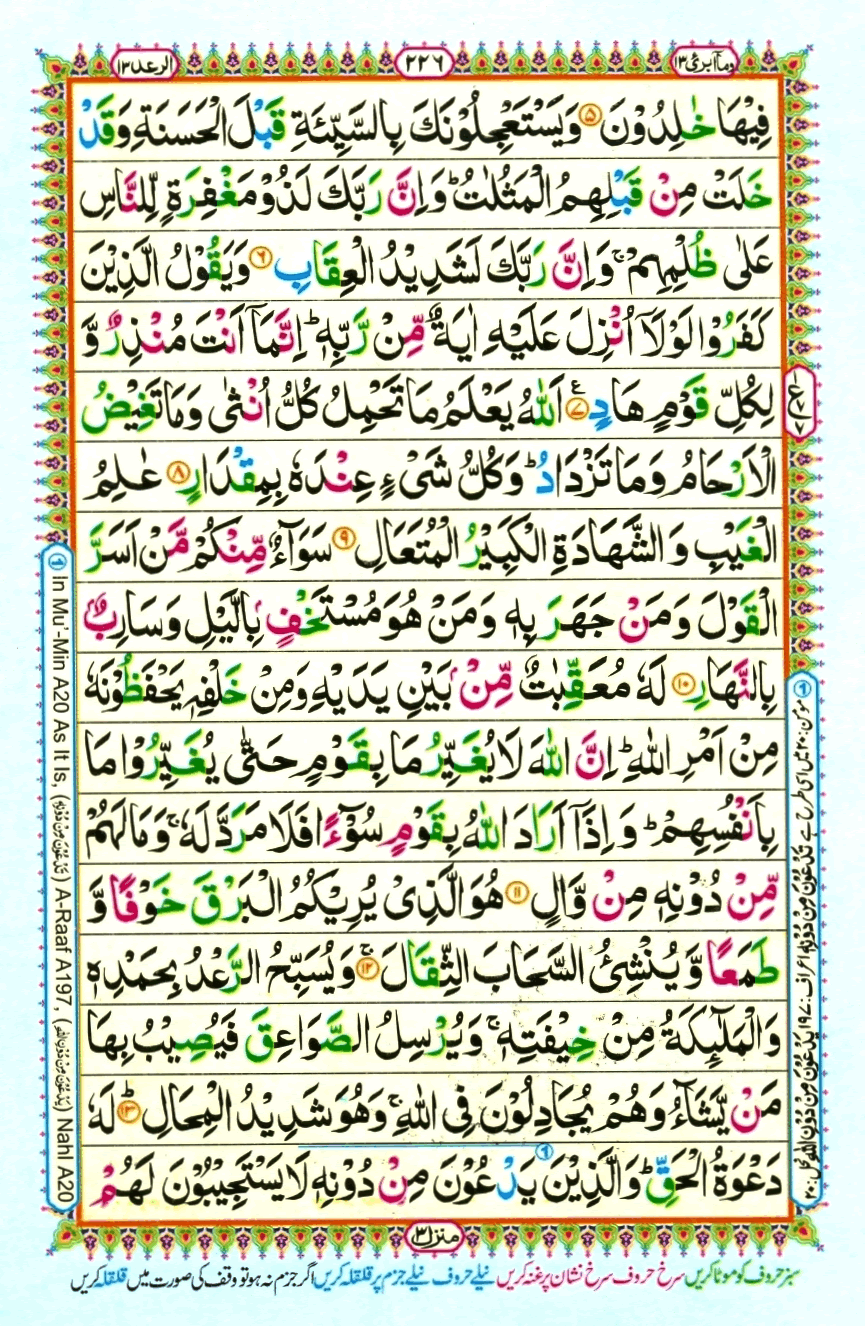 الرعد ۱۳
۲۲٦
وما ابرئ ۱۳
فِيْهَا خٰلِدُوْنَ ۵ وَيَسْتَعْجِلُوْنَكَ بِالسَّيِّئَةِ قَبْلَ الْحَسَنَةِ وَقَدْ
خَلَتْ مِنْ قَبْلِهِمُ الْمَثُلٰتُ ؕ وَاِنَّ رَبَّكَ لَذُوْ مَغْفِرَةٍ لِّلنَّاسِ
عَلٰى ظُلْمِهِمْ ۚ وَاِنَّ رَبَّكَ لَشَدِيْدُ الْعِقَابِ ۶ وَيَقُوْلُ الَّذِيْنَ
كَفَرُوْا لَوْلَاۤ اُنْزِلَ عَلَيْهِ اٰيَةٌ مِّنْ رَّبِّهٖ ؕ اِنَّمَاۤ اَنْتَ مُنْذِرٌ وَّ
لِكُلِّ قَوْمٍ هَادٍ ۷ ع اَللّٰهُ يَعْلَمُ مَا تَحْمِلُ كُلُّ اُنْثٰى وَمَا تَغِيْضُ
الْاَرْحَامُ وَمَا تَزْدَادُ ؕ وَكُلُّ شَیْءٍ عِنْدَهٗ بِمِقْدَارٍ ۸ عٰلِمُ
الْغَيْبِ وَالشَّهَادَةِ الْكَبِيْرُ الْمُتَعَالِ ۹ سَوَآءٌ مِّنْكُمْ مَّنْ اَسَرَّ
الْقَوْلَ وَمَنْ جَهَرَ بِهٖ وَمَنْ هُوَ مُسْتَخْفٍۭ بِالَّيْلِ وَسَارِبٌۢ
بِالنَّهَارِ ۱۰ لَهٗ مُعَقِّبٰتٌ مِّنْۢ بَيْنِ يَدَيْهِ وَمِنْ خَلْفِهٖ يَحْفَظُوْنَهٗ
مِنْ اَمْرِ اللّٰهِ ؕ اِنَّ اللّٰهَ لَا يُغَيِّرُ مَا بِقَوْمٍ حَتّٰى يُغَيِّرُوْا مَا
بِاَنْفُسِهِمْ ؕ وَاِذَاۤ اَرَادَ اللّٰهُ بِقَوْمٍ سُوْۤءًا فَلَا مَرَدَّ لَهٗ ۚ وَمَا لَهُمْ
مِّنْ دُوْنِهٖ مِنْ وَّالٍ ۱۱ هُوَ الَّذِیْ يُرِيْكُمُ الْبَرْقَ خَوْفًا وَّ
طَمَعًا وَّيُنْشِئُ السَّحَابَ الثِّقَالَ ۱۲ ۚ وَيُسَبِّحُ الرَّعْدُ بِحَمْدِهٖ
وَالْمَلٰٓئِكَةُ مِنْ خِيْفَتِهٖ ۚ وَيُرْسِلُ الصَّوَاعِقَ فَيُصِيْبُ بِهَا
مَنْ يَّشَآءُ وَهُمْ يُجَادِلُوْنَ فِى اللّٰهِ ۚ وَهُوَ شَدِيْدُ الْمِحَالِ ۱۳ ؕ لَهٗ
دَعْوَةُ الْحَقِّ ؕ وَالَّذِيْنَ يَدْعُوْنَ ۱ مِنْ دُوْنِهٖ لَا يَسْتَجِيْبُوْنَ لَهُمْ
۱ مؤمن: ۲۰ میں اسی طرح ہے، تَدْعُوْنَ مِنْ دُوْنِهٖ اعراف: ۱۹۷ يَدْعُوْنَ مِنْ دُوْنِ اللّٰهِ نحل: ۲۰
۱ In Mu'-Min A20 As It Is, (تَدْعُوْنَ مِنْ دُوْنِهٖ) A-Raaf A197, (يَدْعُوْنَ مِنْ دُوْنِ اللّٰهِ) Nahl A20
منزل ۳
سبز حروف کو موٹا کریں سرخ حروف سرخ نشان پر غنہ کریں نیلے حروف نیلے جزم پر قلقلہ کریں اگر جزم نہ ہو تو وقف کی صورت میں قلقلہ کریں